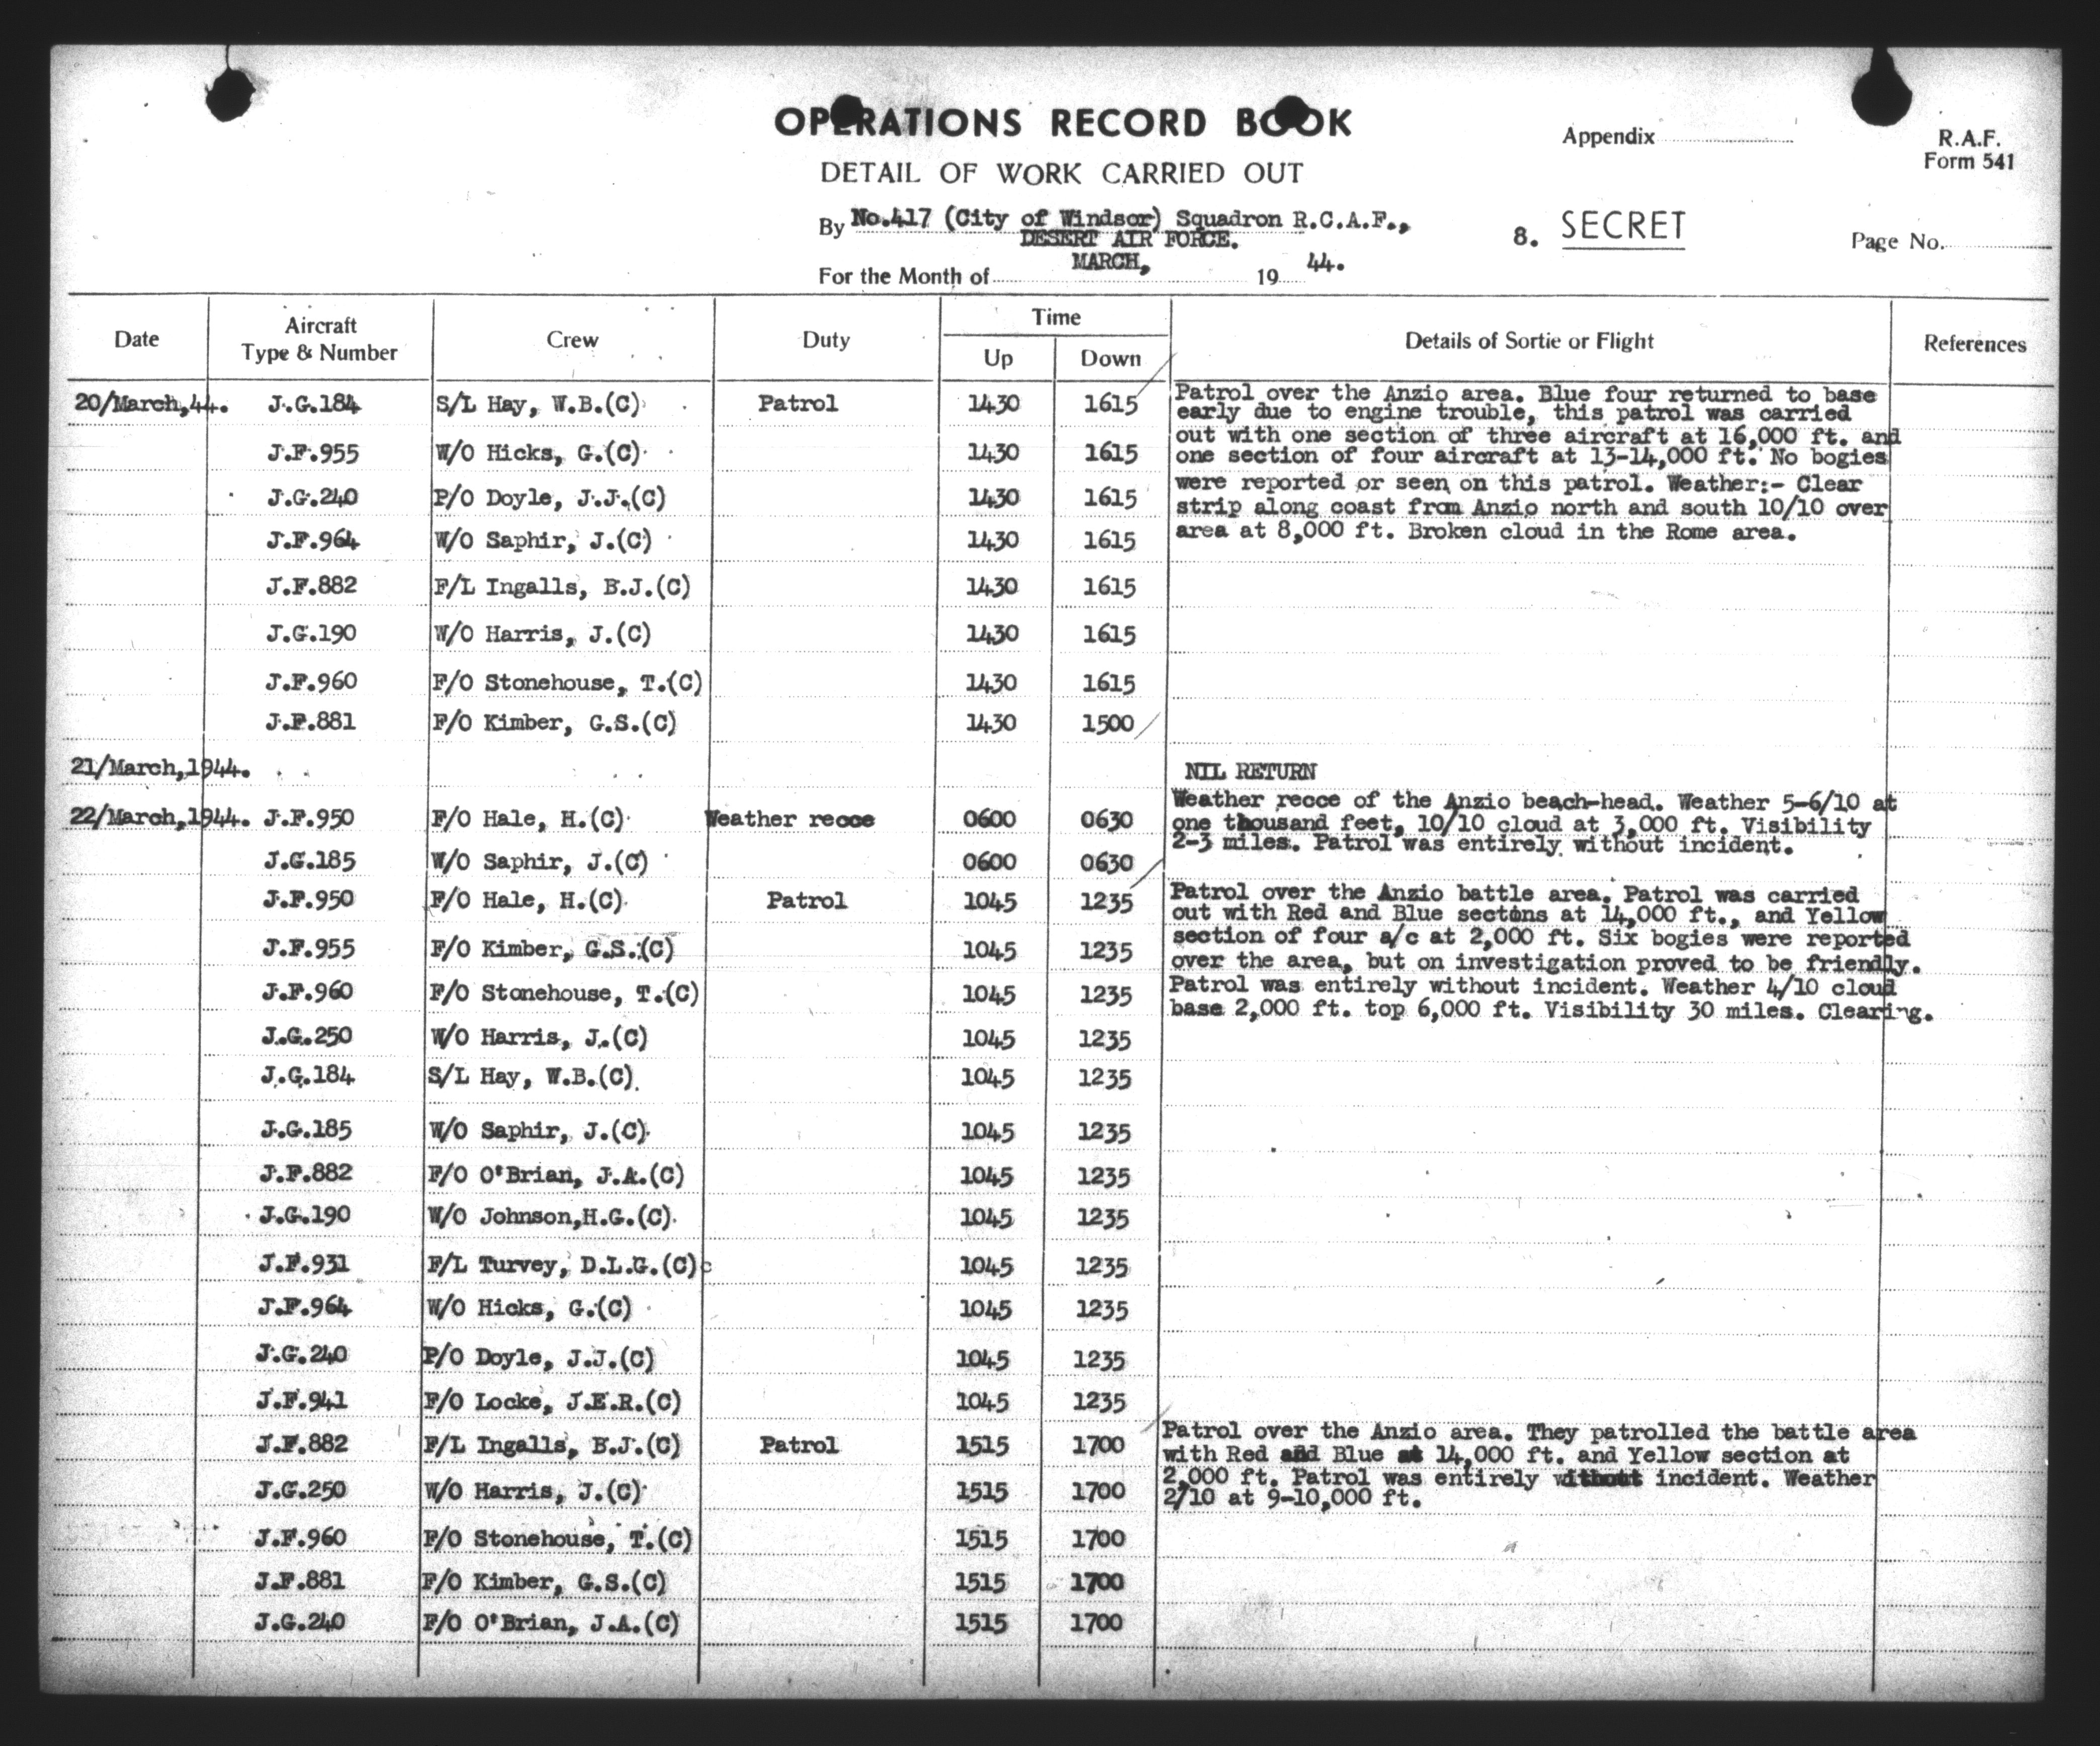 OPERATIONS RECORD BOOK
Appendix
R.A.F.
Form 541
DETAIL OF WORK CARRIED OUT
By No.417 (City of Windsor) Squadron R.C.A.F.,
DESERT AIR FORCE.
8. SECRET
Page No.
For the Month of MARCH, 19 44.
Date
Aircraft
Type & Number
Crew
Duty
Time
Up Down
Details of Sortie or Flight
References
20/March,44. J.G.184 S/L Hay, W.B.(C) Patrol 1430 1615
J.F.955 W/O Hicks, G.(C) 1430 1615
J.G.240 P/O Doyle, J.J.(C) 1430 1615
J.F.964 W/O Saphir, J.(C) 1430 1615
J.F.882 F/L Ingalls, B.J.(C) 1430 1615
J.G.190 W/O Harris, J.(C) 1430 1615
J.F.960 F/O Stonehouse, T.(C) 1430 1615
J.F.881 F/O Kimber, G.S.(C) 1430 1500
Patrol over the Anzio area. Blue four returned to base
early due to engine trouble, this patrol was carried
out with one section of three aircraft at 16,000 ft. and
one section of four aircraft at 13-14,000 ft. No bogies
were reported or seen on this patrol. Weather:- Clear
strip along coast from Anzio north and south 10/10 over
area at 8,000 ft. Broken cloud in the Rome area.
21/March,1944. NIL RETURN
22/March,1944. J.F.950 F/O Hale, H.(C) Weather recce 0600 0630
J.G.185 W/O Saphir, J.(C) 0600 0630
Weather recce of the Anzio beach-head. Weather 5-6/10 at
one thousand feet, 10/10 cloud at 3,000 ft. Visibility
2-3 miles. Patrol was entirely without incident.
J.F.950 F/O Hale, H.(C) Patrol 1045 1235
J.F.955 F/O Kimber, G.S.(C) 1045 1235
J.F.960 F/O Stonehouse, T.(C) 1045 1235
J.G.250 W/O Harris, J.(C) 1045 1235
J.G.184 S/L Hay, W.B.(C) 1045 1235
J.G.185 W/O Saphir, J.(C) 1045 1235
J.F.882 F/O O'Brian, J.A.(C) 1045 1235
J.G.190 W/O Johnson,H.G.(C) 1045 1235
J.F.931 F/L Turvey, D.L.G.(C) 1045 1235
J.F.964 W/O Hicks, G.(C) 1045 1235
J.G.240 P/O Doyle, J.J.(C) 1045 1235
J.F.941 F/O Locke, J.E.R.(C) 1045 1235
Patrol over the Anzio battle area. Patrol was carried
out with Red and Blue sectons at 14,000 ft., and Yellow
section of four a/c at 2,000 ft. Six bogies were reported
over the area, but on investigation proved to be friendly.
Patrol was entirely without incident. Weather 4/10 cloud
base 2,000 ft. top 6,000 ft. Visibility 30 miles. Clearing.
J.F.882 F/L Ingalls, B.J.(C) Patrol 1515 1700
J.G.250 W/O Harris, J.(C) 1515 1700
J.F.960 F/O Stonehouse, T.(C) 1515 1700
J.F.881 F/O Kimber, G.S.(C) 1515 1700
J.G.240 F/O O'Brian, J.A.(C) 1515 1700
Patrol over the Anzio area. They patrolled the battle area
with Red and Blue at 14,000 ft. and Yellow section at
2,000 ft. Patrol was entirely without incident. Weather
2/10 at 9-10,000 ft.